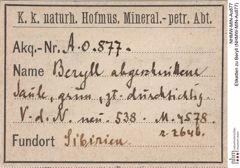 K. k. naturh. Hofmus. Mineral.-petr. Abt.
Akq.-Nr. A.o.877.
Name Beryll abgeschnittene
Säule, grün, zt. durchsichtig.
V. d. N. neu. 538. M. 4578.
Fundort Sibirien.